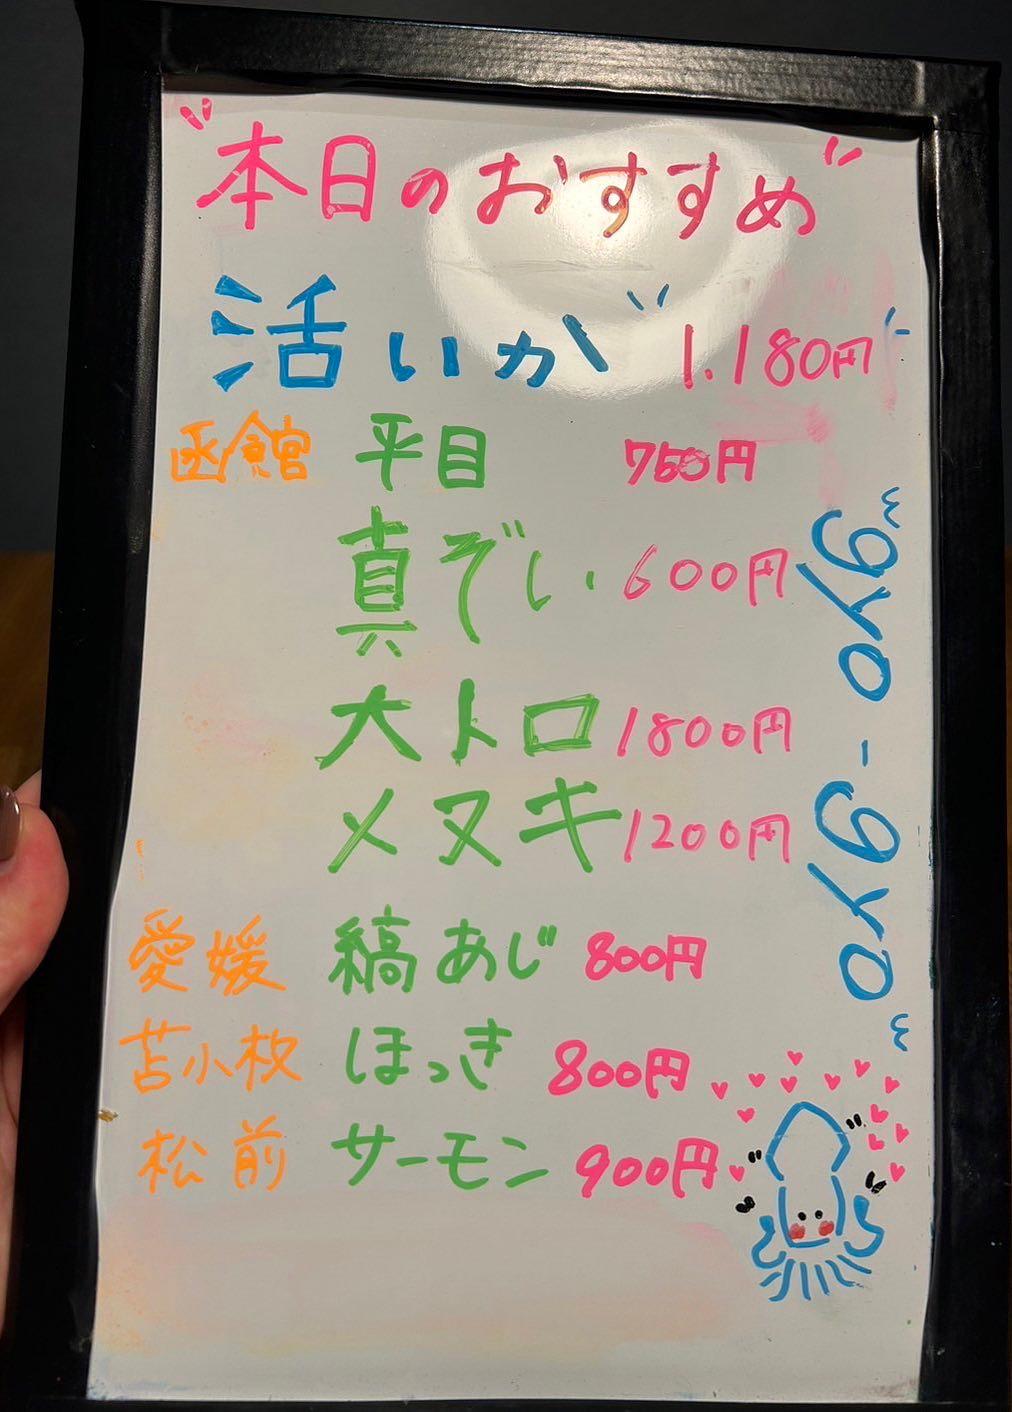 本日のおすすめ
活いか 1.180円
函館 平目 750円
真ぞい 600円
大トロ 1800円
メヌキ 1200円
愛媛 縞あじ 800円
苫小枚 ほっき 800円
松前 サーモン 900円
gyo-gyo